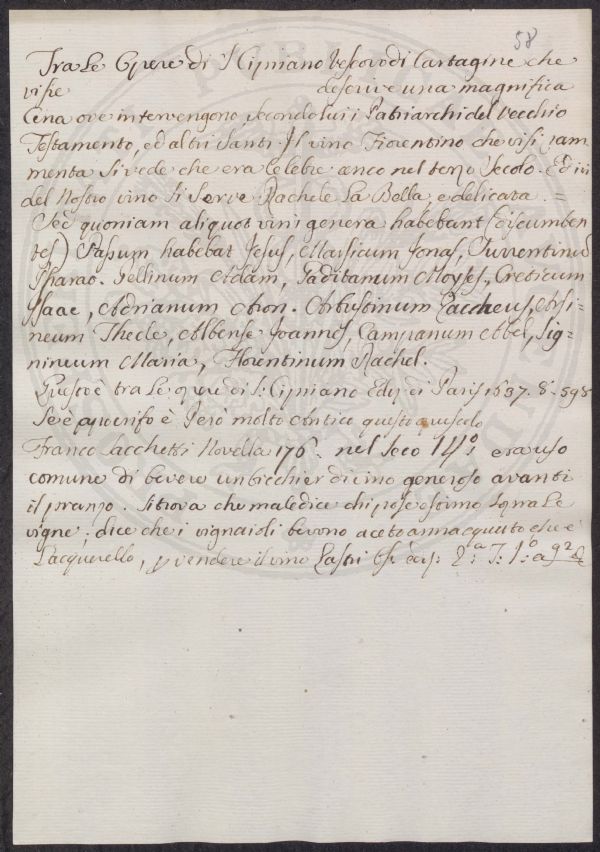 58
Tra Le Opere di S Cipriano Vescovo di Cartagine che
visse descrive una magnifica
Cena ove intervengono secondo lui i Patriarchi del Vecchio
Testamento, ed altri Santi. Il vino Fiorentino che vi si ram
menta si vede che era celebre anco nel terzo Secolo. Ed ivi
del Nostro vino si serve Rachele La Bella, e delicata. =
Sed quoniam aliquot vini genera habebant (discumben
tes) Passum habebat Jesus, Marsicum Jonas, Surrentinum
Pharao. Pellinum Adam, Gaditanum Moyses, Creticum
Isaac, Adrianum Aron. Arbustinum Zaccheus, Arsi=
neum Thecle, Albense Joannes, Campanum Abel, Sig=
nineum Maria, Florentinum Rachel.
Questo è tra Le opere di S. Cipriano Ediz. di Parigi 1637. 8. 598
Se è apocrifo è Però molto Antico questo opuscolo
Franco Sacchetti Novella 176. nel Seco 14º. era uso
comune di bevere un bicchier di vino generoso avanti
il pranzo. Si trova che maledice chi pose
vigne; dice che i vignaioli bevono aceto annacquato che è
L'acquerello, p vendere il vino Lastri 2.a T. 1.o a 92